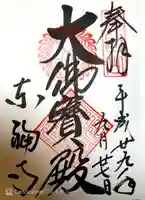 奉拝
平成廿九年
九月廿七日
大佛寳殿
東福寺